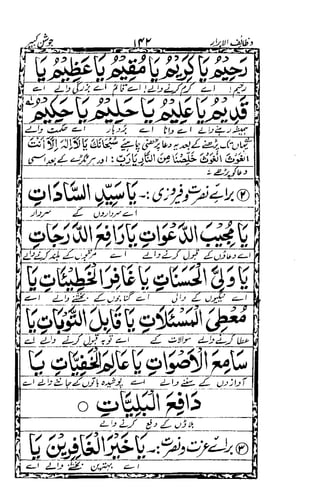 وظائف الابرار ۱۴۲ جوشن کبیر
رَحِيْمُ يَا كَرِيْمُ يَا مُقِيْمُ يَا عَظِيْمُ يَا
رحیم اے کرم کرنے والے اے قائم اے بزرگی والے اے
قَدِيْمُ يَا عَلِيْمُ يَا حَلِيْمُ يَا حَكِيْمُ
ہمیشہ رہنے والے اے دانا اے بردبار اے حکمت والے
پڑھنے کے بعد یہ دعا پڑھنی چاہیے سُبْحَانَكَ يَا لَا اِلٰهَ اِلَّا اَنْتَ
اَلْغَوْثَ الْغَوْثَ خَلِّصْنَا مِنَ النَّارِ يَا رَبِّ: اور ہر ٹکڑے کے بعد اسی
دعا کو پڑھے
② برائے نصرت و فیروزی:۔ يَا سَيِّدَ السَّادَاتِ
اے سرداروں کے سردار
يَا مُجِيْبَ الدَّعَوَاتِ يَا رَافِعَ الدَّرَجَاتِ
اے دعاؤں کے قبول کرنے والے اے کے بلند کرنے والے
يَا وَلِيَّ الْحَسَنَاتِ يَا غَافِرَ الْخَطِيْئَاتِ يَا
اے نیکیوں کے والی اے گناہوں کے بخشنے والے اے
مُعْطِيَ الْمَسْئَلَاتِ يَا قَابِلَ التَّوْبَاتِ يَا
عطا کرنے والے سوالات کے اے توبہ قبول کرنے والے اے
سَامِعَ الْاَصْوَاتِ يَا عَالِمَ الْخَفِيَّاتِ يَا
آوازوں کے سننے والے اے پوشیدہ باتوں کے جاننے والے اے
دَافِعَ الْبَلِيَّاتِ ○
بلاؤں کے دفع کرنے والے
③ برائے عزت و نصرت:۔ يَا خَيْرَ الْغَافِرِيْنَ يَا
اے بہترین بخشنے والے اے